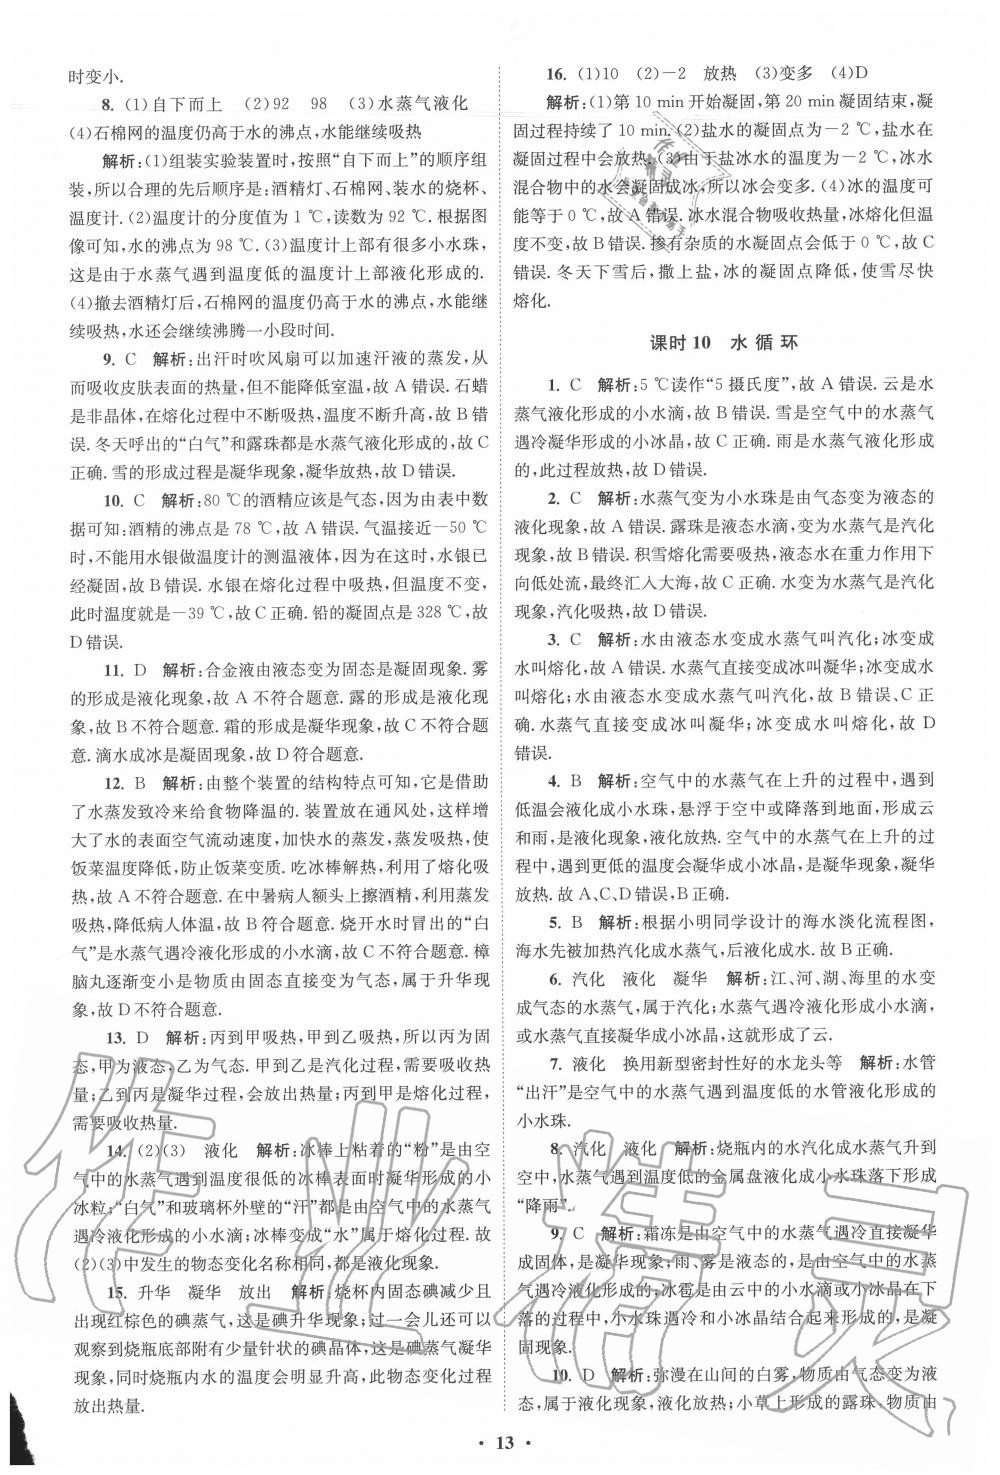 时变小.
8. (1)自下而上 (2)92 98 (3)水蒸气液化
(4)石棉网的温度仍高于水的沸点,水能继续吸热
解析:(1)组装实验装置时,按照“自下而上”的顺序组
装,所以合理的先后顺序是:酒精灯、石棉网、装水的烧杯、
温度计. (2)温度计的分度值为 1 ℃,读数为 92 ℃. 根据图
像可知,水的沸点为 98 ℃. (3)温度计上部有很多小水珠,
这是由于水蒸气遇到温度低的温度计上部液化形成的.
(4)撤去酒精灯后,石棉网的温度仍高于水的沸点,水能继
续吸热,水还会继续沸腾一小段时间.
9. C 解析:出汗时吹风扇可以加速汗液的蒸发,从
而吸收皮肤表面的热量,但不能降低室温,故 A 错误. 石蜡
是非晶体,在熔化过程中不断吸热,温度不断升高,故 B 错
误. 冬天呼出的“白气”和露珠都是水蒸气液化形成的,故 C
正确. 雪的形成过程是凝华现象,凝华放热,故 D 错误.
10. C 解析:80 ℃的酒精应该是气态,因为由表中数
据可知:酒精的沸点是 78 ℃,故 A 错误. 气温接近-50 ℃
时,不能用水银做温度计的测温液体,因为在这时,水银已
经凝固,故 B 错误. 水银在熔化过程中吸热,但温度不变,
此时温度就是-39 ℃,故 C 正确. 铅的凝固点是 328 ℃,故
D 错误.
11. D 解析:合金液由液态变为固态是凝固现象. 雾
的形成是液化现象,故 A 不符合题意. 露的形成是液化现
象,故 B 不符合题意. 霜的形成是凝华现象,故 C 不符合题
意. 滴水成冰是凝固现象,故 D 符合题意.
12. B 解析:由整个装置的结构特点可知,它是借助
了水蒸发致冷来给食物降温的. 装置放在通风处,这样增
大了水的表面空气流动速度,加快水的蒸发,蒸发吸热,使
饭菜温度降低,防止饭菜变质. 吃冰棒解热,利用了熔化吸
热,故 A 不符合题意. 在中暑病人额头上擦酒精,利用蒸发
吸热,降低病人体温,故 B 符合题意. 烧开水时冒出的“白
气”是水蒸气遇冷液化形成的小水滴,故 C 不符合题意. 樟
脑丸逐渐变小是物质由固态直接变为气态,属于升华现
象,故 D 不符合题意.
13. D 解析:丙到甲吸热,甲到乙吸热,所以丙为固
态,甲为液态,乙为气态. 甲到乙是汽化过程,需要吸收热
量;乙到丙是凝华过程,会放出热量;丙到甲是熔化过程,
需要吸收热量.
14. (2)(3) 液化 解析:冰棒上粘着的“粉”是由空
气中的水蒸气遇到温度很低的冰棒表面时凝华形成的小
冰粒;“白气”和玻璃杯外壁的“汗”都是由空气中的水蒸气
遇冷液化形成的小水滴;冰棒变成“水”属于熔化过程. 故
(2)(3)中发生的物态变化名称相同,都是液化现象.
15. 升华 凝华 放出 解析:烧杯内固态碘减少且
出现红棕色的碘蒸气,这是碘升华现象;过一会儿还可以
观察到烧瓶底部附有少量针状的碘晶体,故碘蒸气凝华
现象,同时烧瓶内水的温度会明显升高,此物态变化过程
放出热量.
16. (1)10 (2)-2 放热 (3)变多 (4)D
解析:(1)第 10 min 开始凝固,第 20 min 凝固结束,凝
固过程持续了 10 min. (2)盐水的凝固点为-2 ℃,盐水在
凝固过程中会放热. (3)由于盐冰水的温度为-2 ℃,冰水
混合物中的水会凝固成冰,所以冰会变多. (4)冰的温度可
能等于 0 ℃,故 A 错误. 冰水混合物吸收热量,冰熔化但温
度不变,故 B 错误. 掺有杂质的水凝固点会低于 0 ℃,故 C
错误. 冬天下雪后,撒上盐,冰的凝固点降低,使雪尽快
熔化.
课时 10 水 循 环
1. C 解析:5 ℃读作“5 摄氏度”,故 A 错误. 云是水
蒸气液化形成的小水滴,故 B 错误. 雪是空气中的水蒸气
遇冷凝华形成的小冰晶,故 C 正确. 雨是水蒸气液化形成
的,此过程放热,故 D 错误.
2. C 解析:水蒸气变为小水珠是由气态变为液态的
液化现象,故 A 错误. 露珠是液态水滴,变为水蒸气是汽化
现象,故 B 错误. 积雪熔化需要吸热,液态水在重力作用下
向低处流,最终汇入大海,故 C 正确. 水变为水蒸气是汽化
现象,汽化吸热,故 D 错误.
3. C 解析:水由液态水变成水蒸气叫汽化;冰变成
水叫熔化,故 A 错误. 水蒸气直接变成冰叫凝华;冰变成水
叫熔化;水由液态水变成水蒸气叫汽化,故 B 错误、C 正
确. 水蒸气直接变成冰叫凝华;冰变成水叫熔化,故 D
错误.
4. B 解析:空气中的水蒸气在上升的过程中,遇到
低温会液化成小水珠,悬浮于空中或降落到地面,形成云
和雨,是液化现象,液化放热. 空气中的水蒸气在上升的过
程中,遇到更低的温度会凝华成小冰晶,是凝华现象,凝华
放热. 故 A、C、D 错误,B 正确.
5. B 解析:根据小明同学设计的海水淡化流程图,
海水先被加热汽化成水蒸气,后液化成水. 故 B 正确.
6. 汽化 液化 凝华 解析:江、河、湖、海里的水变
成气态的水蒸气,属于汽化;水蒸气遇冷液化形成小水滴,
或水蒸气直接凝华成小冰晶,这就形成了云.
7. 液化 换用新型密封性好的水龙头等 解析:水管
“出汗”是空气中的水蒸气遇到温度低的水管液化形成的
小水珠.
8. 汽化 液化 解析:烧瓶内的水汽化成水蒸气升到
空中,水蒸气遇到温度低的金属盘液化成小水珠落下形成
“降雨”.
9. C 解析:霜冻是由空气中的水蒸气遇冷直接凝华
成固体,是凝华现象;雨、雾是液态的,是空气中的水蒸
气遇冷液化形成的;冰雹是由云中的小水滴或小冰晶在下
落的过程中,小水珠遇冷和小冰晶结合起来形成的,是凝
固现象.
10. D 解析:弥漫在山间的白雾,物质由气态变为液
态,属于液化现象,有热量放出;小草上形成的露珠,物质由
• 13 •
作业精灵